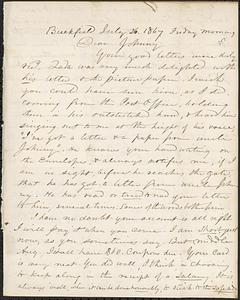 Buckfield July 26. 1867 Friday morning
Dear Johnny
Your good letters were duly
rec'd. Zade was very much delighted with
his letter & the picture paper. I wish
you could have seen him as I did
coming from the Post Office, holding
them in his outstretched hand, & hear him
singing out to me at the hight of his voice,
"I've got a letter & a paper from uncle
Johnny". He knows your hand writing on
the Envelopes, & always notifies me, if I
am in sight, before he reaches the gate,
that he has got a letter from uncle John
ny. He has had to read your letter
to him, several times, some of them
I have no doubt your account is all right
I will pay it when you come. I am
now, as you sometimes say. But middle
Aug. I will have $10. Coupon due. Your Cad
is very neat. You did well, I think, to choose
to keep along in the receipt of a Salary. It is
always well